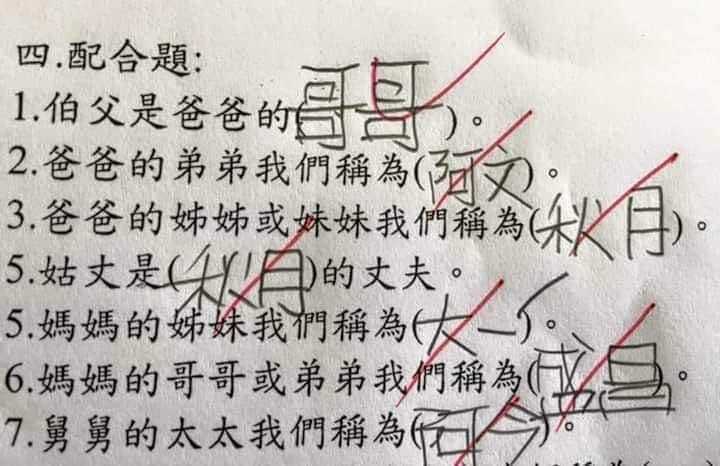 四.配合題:
1.伯父是爸爸的(哥哥)。
2.爸爸的弟弟我們稱為(阿文)。
3.爸爸的姊姊或妹妹我們稱為(秋月)。
5.姑丈是(秋月)的丈夫。
5.媽媽的姊妹我們稱為(大一)。
6.媽媽的哥哥或弟弟我們稱為(昌)。
7.舅舅的太太我們稱為(阿)。